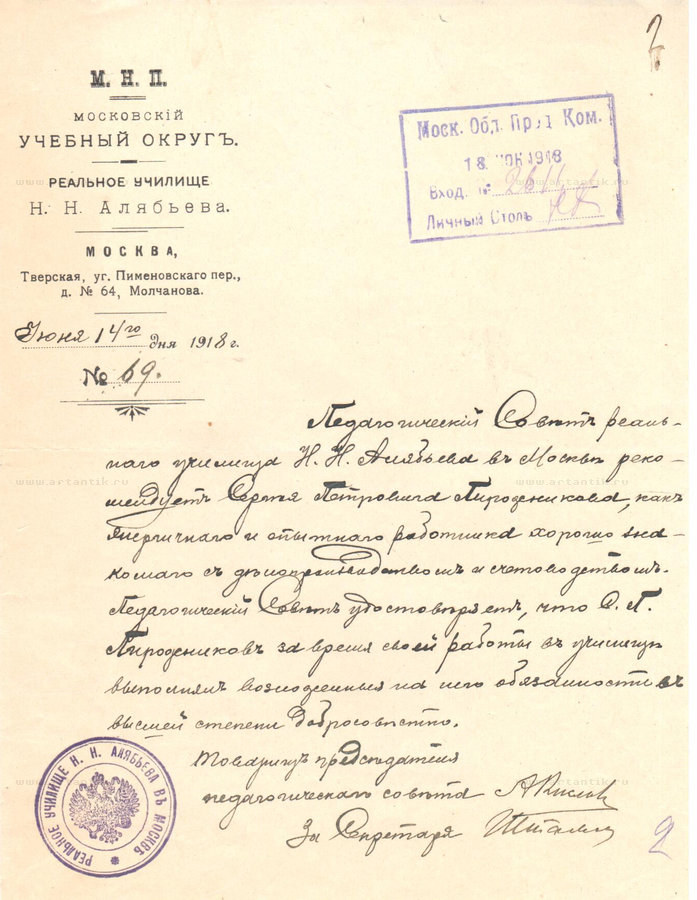 2
М. Н. П.
МОСКОВСКІЙ
УЧЕБНЫЙ ОКРУГЪ.
РЕАЛЬНОЕ УЧИЛИЩЕ
Н. Н. Алябьева.
МОСКВА,
Тверская, уг. Пименовского пер.,
д. № 64, Молчанова.
Іюня 14го дня 1918 г.
№ 69.
Моск. Обл. Прод. Ком.
18 1918
Вход. №
Личный Столъ
Педагогическій Совѣтъ реаль-
наго училища Н. Н. Алябьева въ Москвѣ реко-
мендуетъ Сергѣя Петровича Пироженикова, какъ
энергичнаго и опытнаго работника хорошо зна-
комаго съ дѣлопроизводствомъ и счетоводствомъ.
Педагогическій Совѣтъ удостовѣряетъ, что С. П.
Пирожениковъ за время своей работы въ училищѣ
выполнялъ возложенныя на него обязанности въ
высшей степени добросовѣстно.
Товарищъ предсѣдателя
педагогическаго совѣта
За Секретаря
РЕАЛЬНОЕ УЧИЛИЩЕ Н. Н. АЛЯБЬЕВА ВЪ МОСКВѢ
2
www.artantik.ru